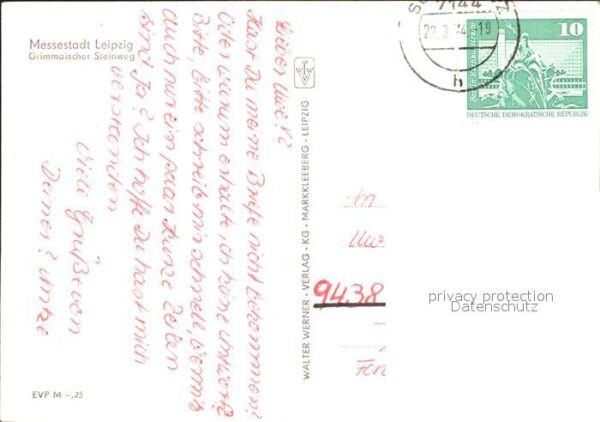 Messestadt Leipzig
Grimmaischer Steinweg
Lieber Uwe!
Hast Du meine Briefe nicht bekommen?
Oder warum erhalte ich keine Antwort?
Bitte, bitte schreib mir schnell, wenn's
auch nur ein paar kurze Zeilen
sind ja? Ich hoffe Du hast mich
verstanden
Viele Grüße von
Deiner
EVP M –,25
WALTER WERNER - VERLAG - KG - MARKKLEEBERG - LEIPZIG
7144
22.3.74-19
h
10
DEUTSCHE DEMOKRATISCHE REPUBLIK
Uw
9438
privacy protection
Datenschutz